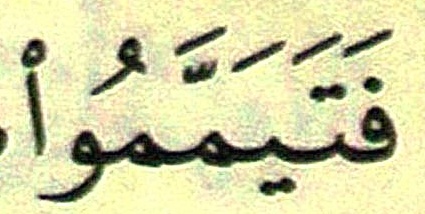 فَتَيَمَّمُواْ